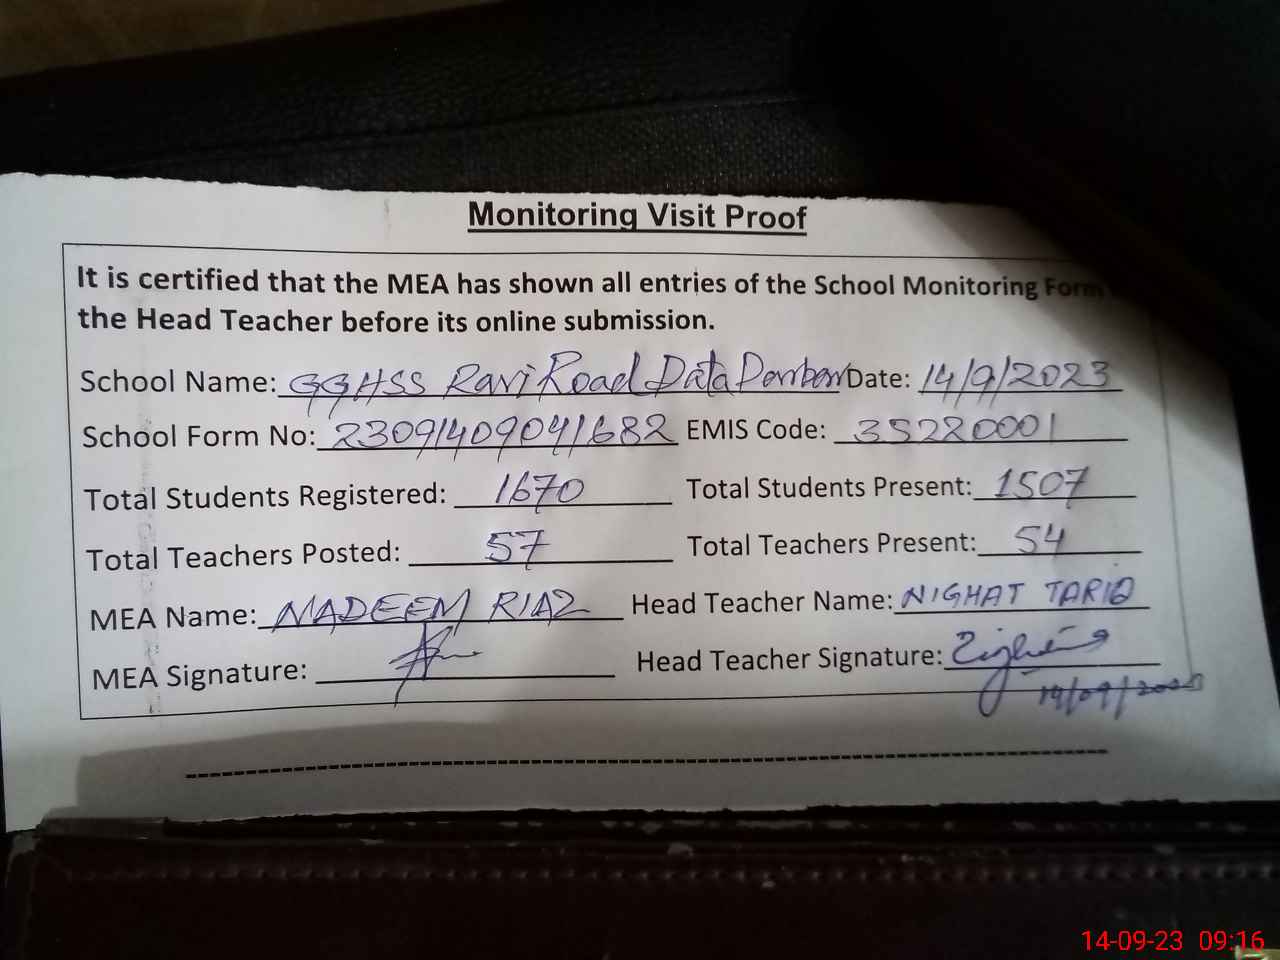 Monitoring Visit Proof
It is certified that the MEA has shown all entries of the School Monitoring Form
the Head Teacher before its online submission.
School Name: GGHSS Ravi Road Data Darbar Date: 14/9/2023
School Form No: 230914090941682 EMIS Code: 35220001
Total Students Registered: 1670 Total Students Present: 1507
Total Teachers Posted: 57 Total Teachers Present: 54
MEA Name: NADEEM RIAZ Head Teacher Name: NIGHAT TARIQ
MEA Signature: Head Teacher Signature:
14/09/2023
14-09-23 09:16